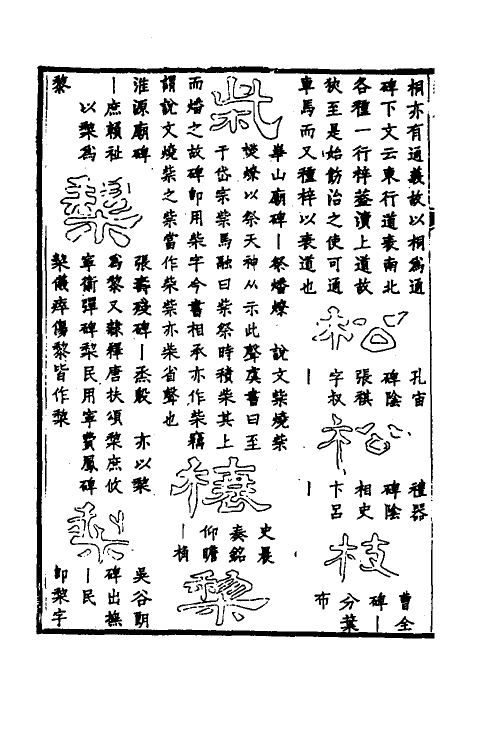 桐亦有通義故以桐為通
碑下文云東行道表南北
各種一行梓蓋瀆上道故
狄至是始飭治之使可通
車馬而又種梓以表道也
松
孔宙
碑陰
張祺
字叔
—
松
禮器
碑陰
相史
卞呂
—
枝
曹全
碑—
分葉
布
柴
華山廟碑—祭燔燎　說文柴燒柴
焚燎以祭天神从示此聲虞書曰至
于岱宗柴馬融曰柴祭時積柴其上
而燔之故碑卽用柴字今書相承亦作柴竊
謂說文燒柴之柴當作柴柴亦柴省聲也
榱
史晨
奏銘
仰瞻
—桷
棃
淮源廟碑
—庶賴祉
以棃為
黎
棃
張壽殘碑—烝殷　亦以棃
為黎又隸釋唐扶頌棃庶攸
寧衛彈碑棃民用寧費鳳碑
棃儀瘁傷黎皆作棃
棃
吳谷朗
碑出撫
—民
卽棃字